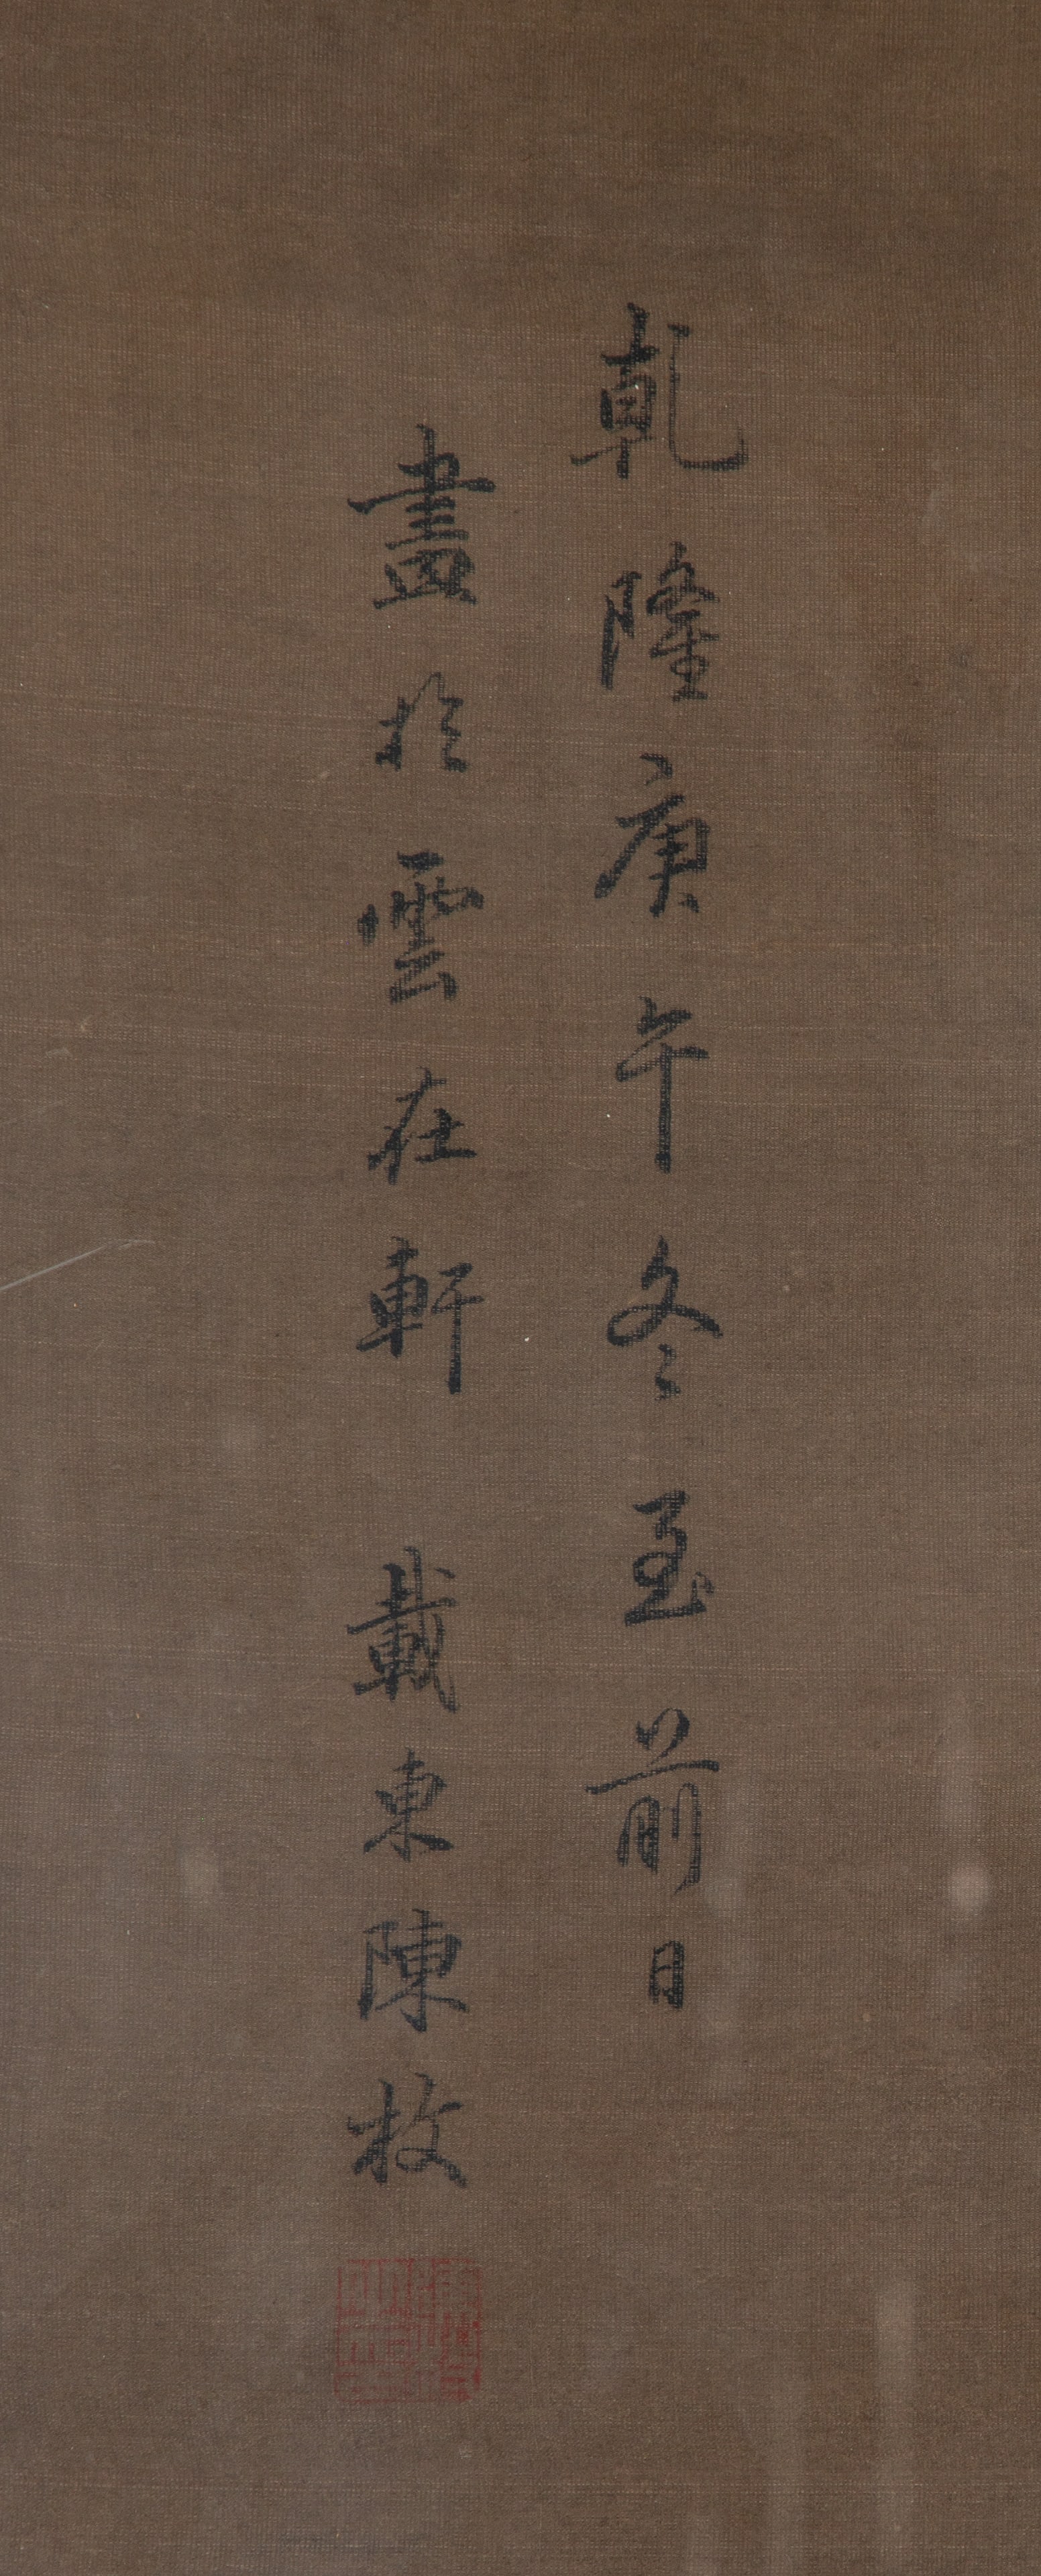 乾隆庚午冬至前日
畫於雲在軒 載東陳枚